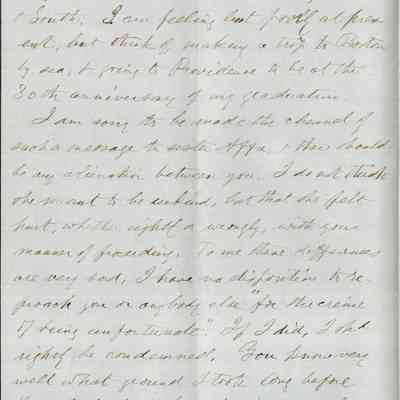 & South. I am feeling but poorly at pres
ent, but think of making a trip to Boston
by sea, & going to Providence to be at the
30th anniversary of my graduation.
I am sorry to be made the channel of
such a message to Aff & that there should
be any alienation between you. I do not think
she meant to be unkind, but that she felt
hurt, whether rightly or wrongly, with your
manner of proceeding. To me these differences
are very sad, I have no disposition to re-
proach you or anybody else "for the crime
of being unfortunate." If I did, I shd
rightly be condemned. You know very
well what ground I took long before